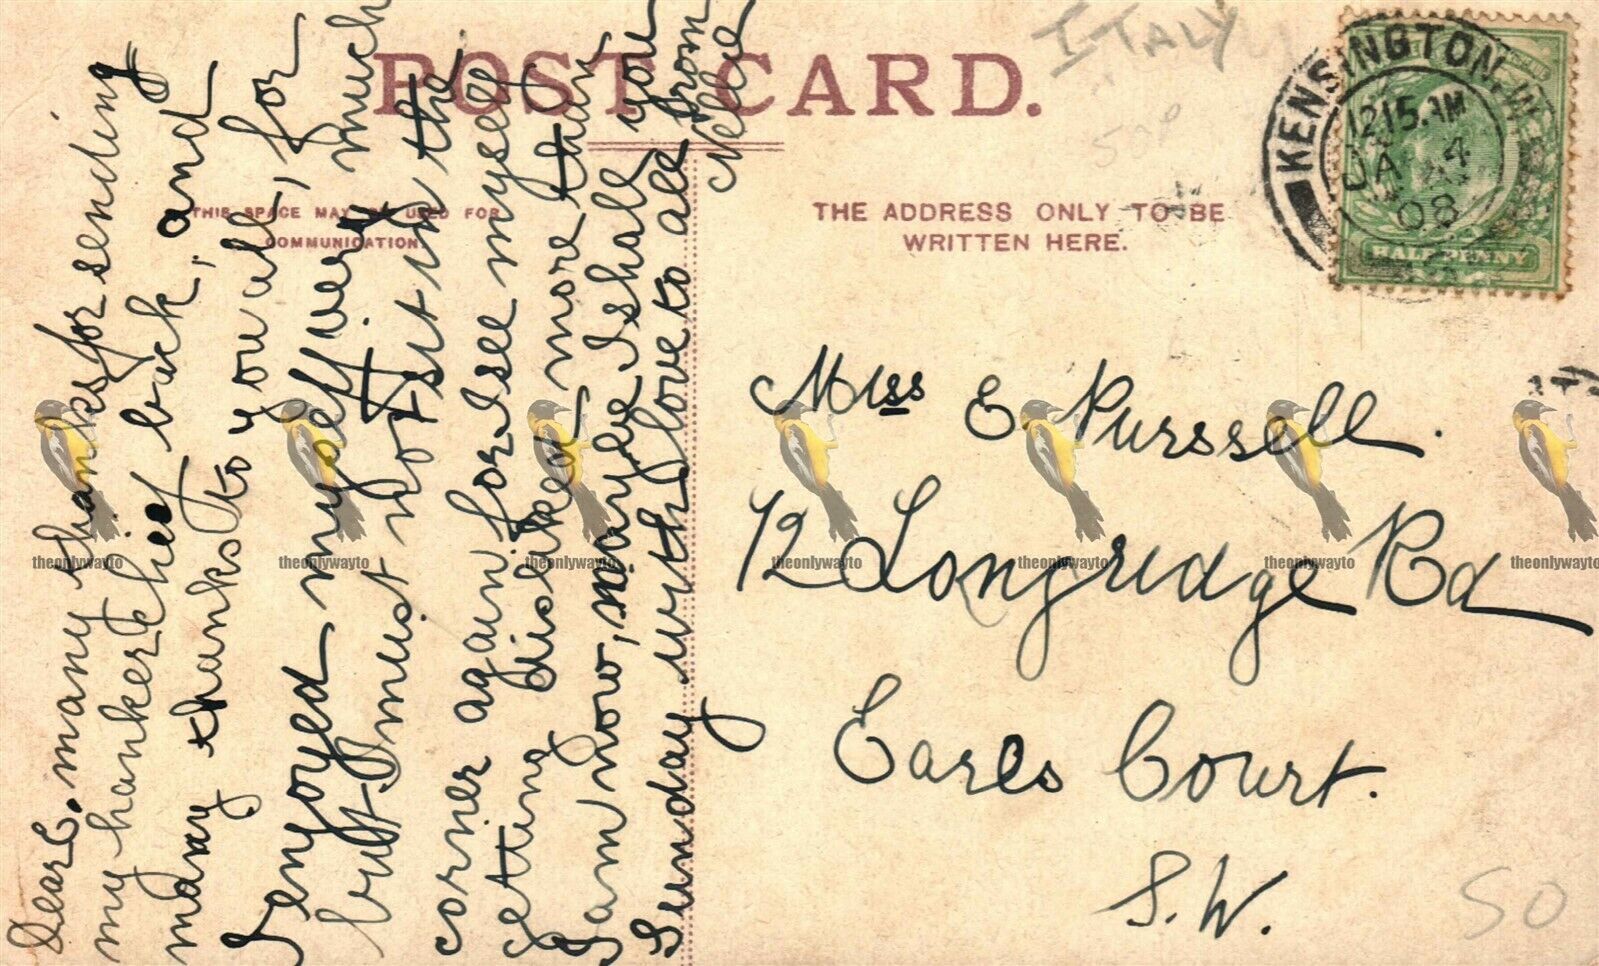 POST CARD.
ITALY
50P
THIS SPACE MAY BE USED FOR
COMMUNICATION.
THE ADDRESS ONLY TO BE
WRITTEN HERE.
KENSINGTON. W.
12.15 AM
JA 4
08
HALF PENNY
Dear E. many thanks for sending
my hankerchief back, and
many thanks to you all, for
I enjoyed myself very much
but I must not sit in the
corner again for I see myself
getting disliked more than
I am now, maybe I shall you
Sunday with love to all from
Nellie
Miss E Purssell.
72 Longridge Rd
Earls Court.
S.W.
50
theonlywayto theonlywayto theonlywayto theonlywayto theonlywayto theonlywayto theonlywayto